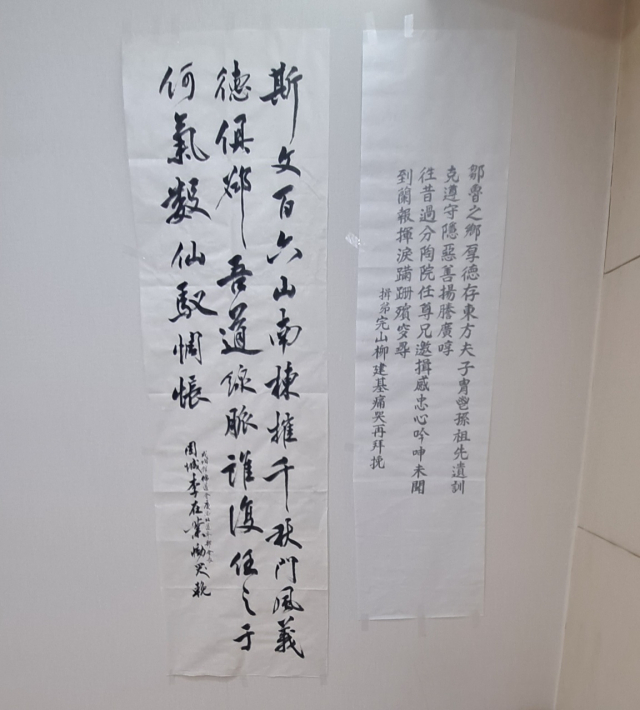 鄒魯之鄉厚德存東方夫子冑孫祖先遺訓
克遵守隱惡善揚謄廣
往昔過分陶院任尊兄邀揖感忠心吟呻未聞
到蘭報揮淚蹣跚殯尋
弟完山柳建基痛哭再拜挽
斯文百六山南棟摧千秋門風義
德俱吾道線脈誰復任之于
何氣數仙馭惆悵
固城李在業慟哭輓